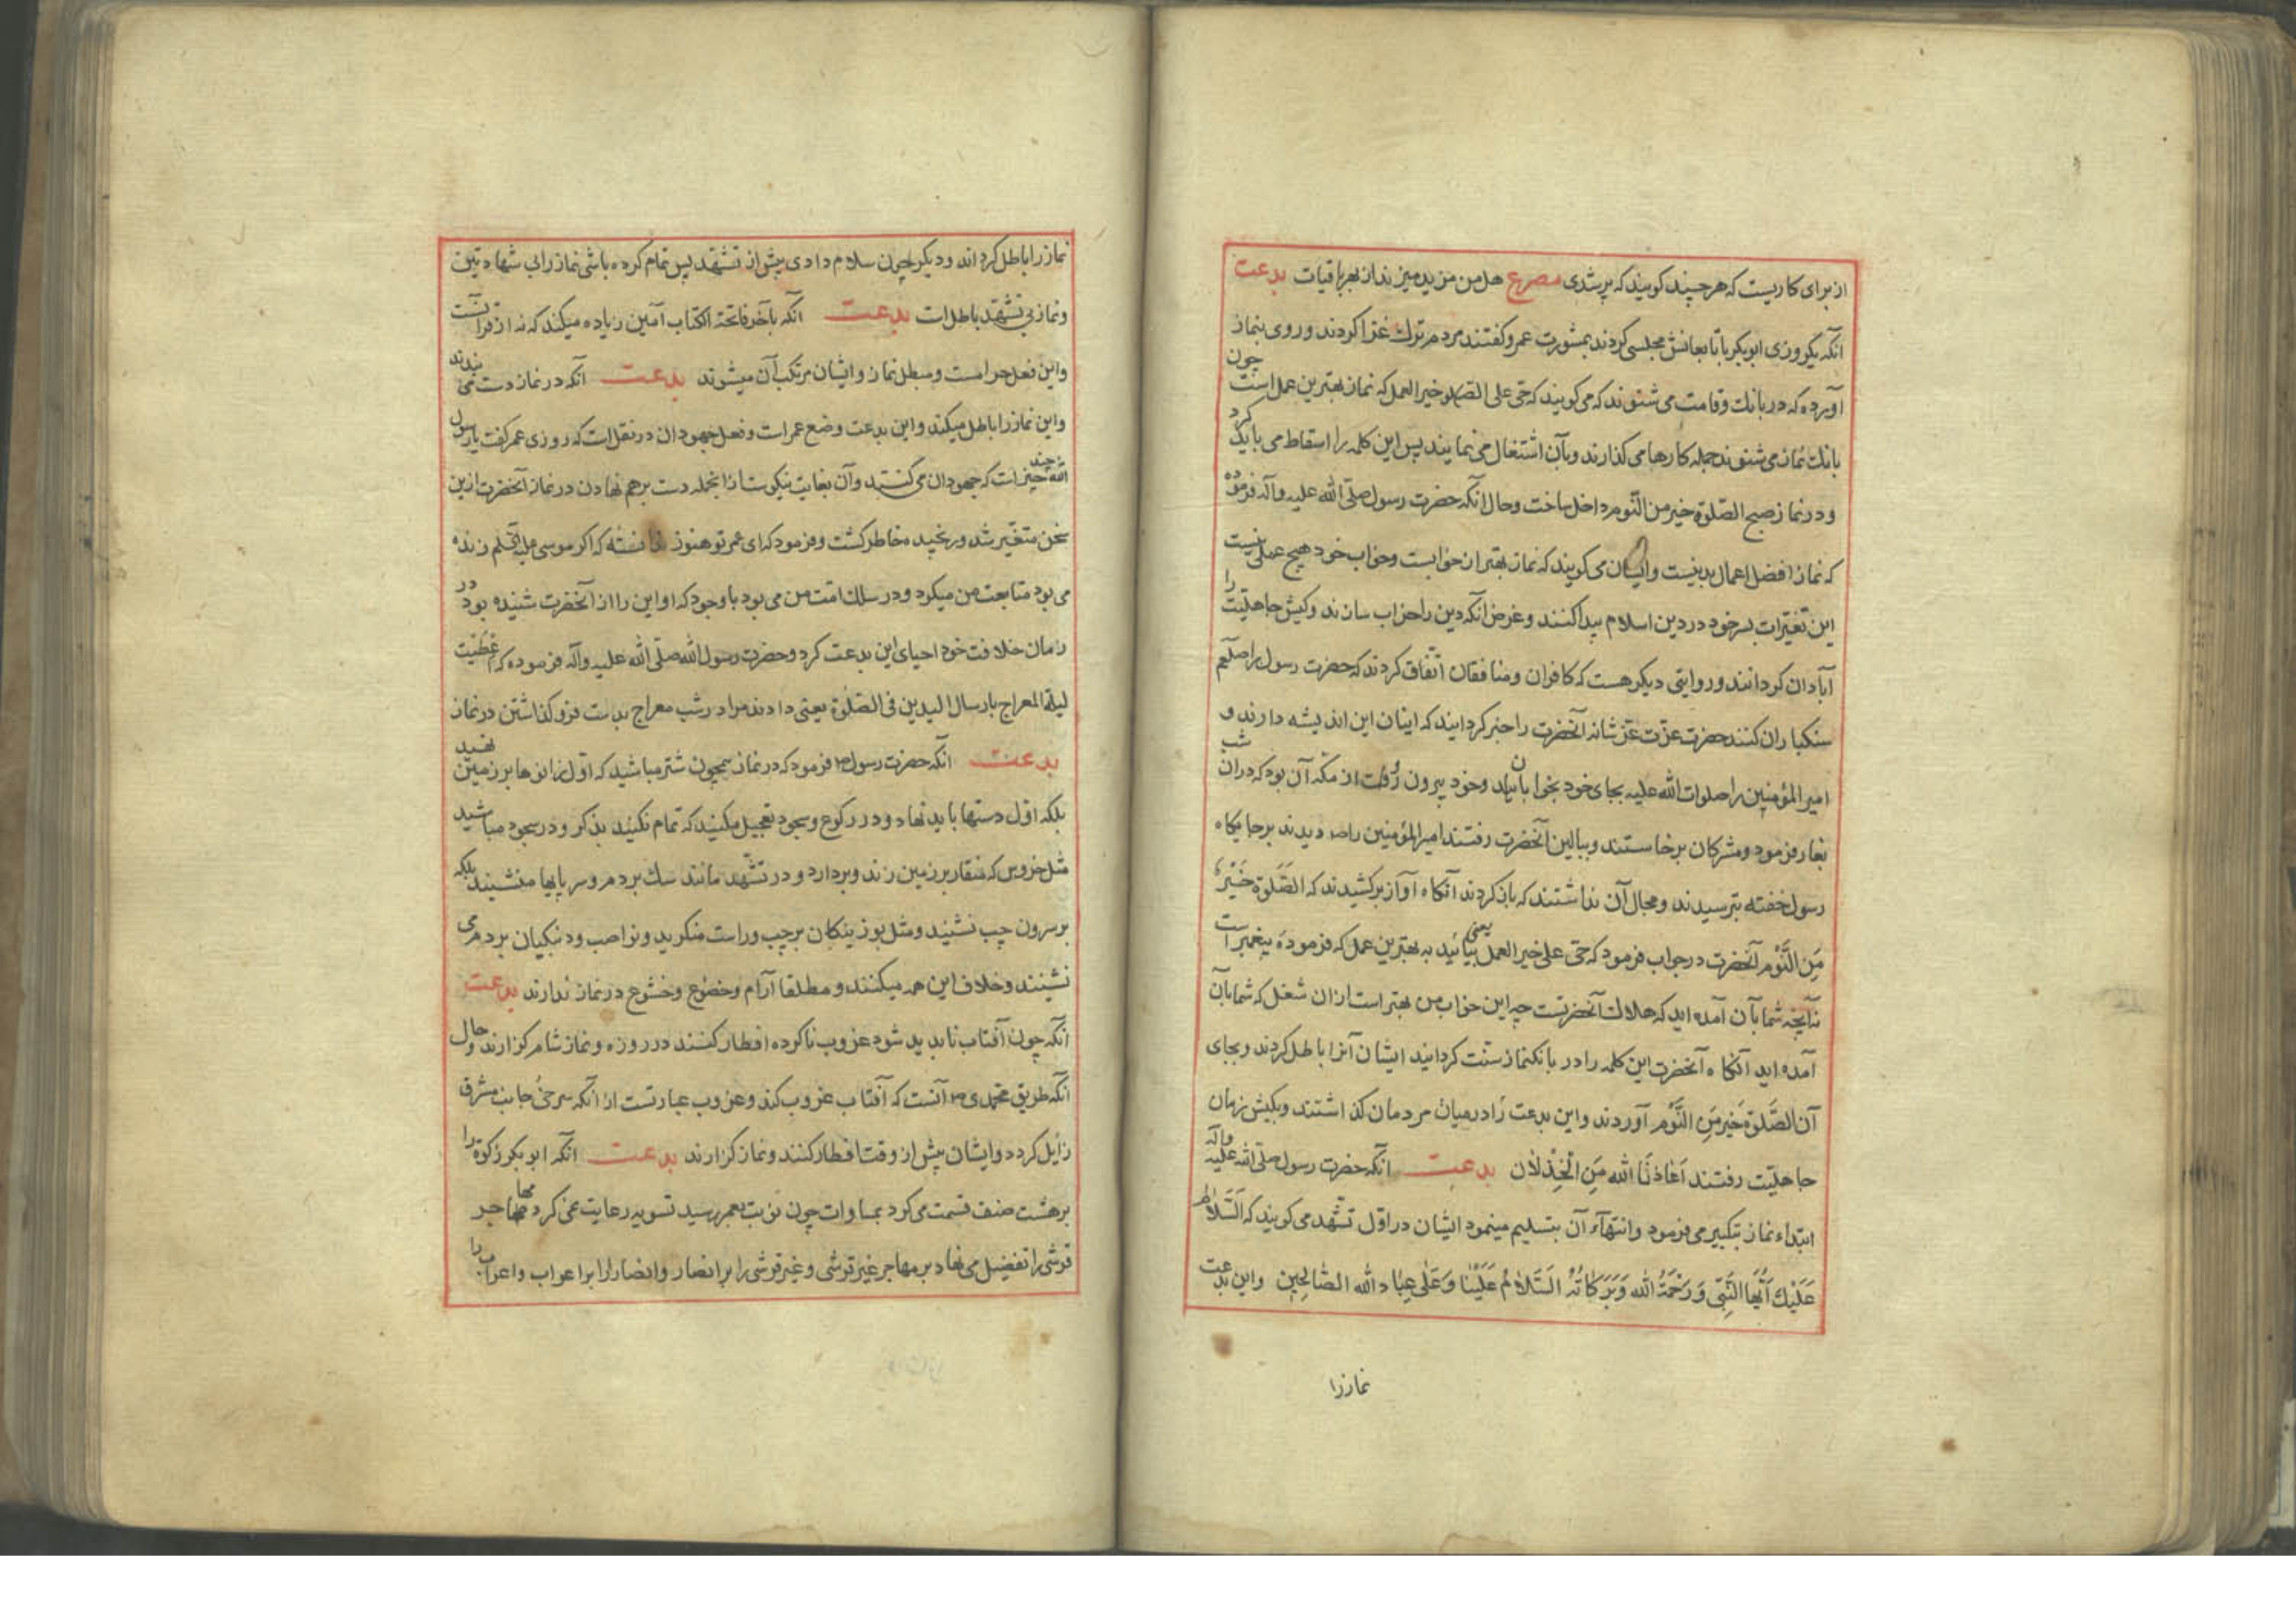 از برای کاریست که هر چند کویند که پر شدی مصرع هل من مزید میزند از بهر باقیات بدعت
انکه یکروزی ابوبکر با تابعانش مجلسی کردند بمشورت عمر و کفتند مردم ترک غزا کردند و روی بنماز
آورده که در بانک و قامت می شنوند که می کویند که حی علی الصلوه خیر العمل که نماز بهترین عمل است چون
بانک نماز می شنوند جمله کارها می کذارند و بآن اشتغال می نمایند پس این کلمه را اسقاط می باید کرد
و در نماز صبح الصلوة خیر من النوم داخل ساخت و حال انکه حضرت رسول صلی الله علیه و آله فرموده
که نماز افضل اعمال بدنیست و ایشان می کویند که نماز بهتر از خوابست و خواب خود هیچ عملی نیست
این تغیرات بسر خود در دین اسلام پیدا کنند و غرض انکه دین را خراب سازند و کیش جاهلیت را
آبادان کردانند و روایتی دیکر هست که کافران و منافقان اتفاق کردند که حضرت رسول را صلعم
سنکباران کنند حضرت عزت عز شانه آنحضرت را خبر کردانید که اینان این اندیشه دارند و
امیر المؤمنین را صلوات الله علیه بجای خود بخوابانید و خود بیرون رفت از مکه آن بود که در ان شب
بغار فرمود و مشرکان برخاستند و ببالین آنحضرت رفتند امیر المؤمنین را دیدند بر جایکاه
رسول خفته بترسیدند و مجال آن نداشتند که باز کردند آنکاه آواز برکشیدند که الصلوة خیر
من النوم آنحضرت در جواب فرمود که حی علی خیر العمل یعنی بیائید به بهترین عمل که فرموده پیغمبر است
نه آنچه شما بآن آمده اید که هلاک آنحضرتست چه این خواب من بهتر است از ان شغل که شما بآن
آمده اید آنکاه آنحضرت این کلمه را در بانکنماز سنت کردانید ایشان آنرا باطل کردند و بجای
آن الصلوة خیر من النوم آوردند و این بدعت را در میان مردمان کذاشتند و بکیش زمان
جاهلیت رفتند اعاذنا الله من الخذلان بدعت انکه حضرت رسول صلی الله علیه و اله
ابتداء نماز بتکبیر می فرمود و انتهاء آن بتسلیم مینمود ایشان در اول تشهد می کویند که السلام
علیک ایها النبی و رحمة الله و برکاته السلام علینا و علی عباد الله الصالحین و این بدعت
نمازرا
نماز را باطل کرد اند و دیکر چون سلام دادی پیش از تشهد پس تمام کرده باشی نماز را بی شهادتین
و نماز بی تشهد باطل است بدعت انکه بآخر فاتحة الکتاب آمین زیاده میکند که نه از قرآنست
و این فعل حرامست و مبطل نماز و ایشان مرتکب آن میشوند بدعت انکه در نماز دست می بندند
و این نماز را باطل میکند و این بدعت وضع عمر است و فعل جهودان در نقل است که روزی عمر کفت یا رسول
الله چند چیز است که جهودان می کنند و آن بغایت نیکوست از انجمله دست بر هم نهادن در نماز آنحضرت ازین
سخن متغیر شد و رنجیده خاطر کشت و فرمود که ای عمر تو هنوز ندانسته که اکر موسی علیه السلم زنده
می بود متابعت من میکرد و در سلک امت من می بود با وجود که او این را از آنحضرت شنیده بود در
زمان خلافت خود احیای این بدعت کرد و حضرت رسول الله صلی الله علیه و آله فرموده که اعطیت
لیلة المعراج بارسال الیدین فی الصلوة یعنی دادند مرا در شب معراج بدست فرو کذاشتن در نماز
بدعت انکه حضرت رسول ص فرمود که در نماز همچون شتر مباشید که اول زانوها بر زمین نهید
بلکه اول دستها باید نهاد و در رکوع و سجود تعجیل مکنید که تمام نکنید بذکر و در سجود مباشید
مثل خروس که منقار بر زمین زند و بردارد و در تشهد مانند سک بر دم و سر پایها منشینید بلکه
بر سرون چپ نشیند و مثل بوزینکان بر چپ و راست منکرید و نواصب و دنبکیان بر دم می
نشینند و خلاف این همه میکنند و مطلقا آرام و خضوع و خشوع در نماز ندارند بدعت
انکه چون آفتاب ناپدید شود غروب ناکرده افطار کنند در روزه و نماز شام کزارند و حال
انکه طریق محمدی ص آنست که آفتاب غروب کند و غروب عبارتست از انکه سرخی جانب مشرق
زایل کردد و ایشان پیش از وقت افطار کنند و نماز کزارند بدعت انکه ابوبکر زکوة را
بر هشت صنف قسمت می کرد بمساوات چون نوبت بعمر رسید تسویه رعایت نمی کرد مهاجر
قرشی را تفضیل می نهاد بر مهاجر غیر قرشی و غیر قرشی را بر انصار و انصار را بر اعراب و اعراب را